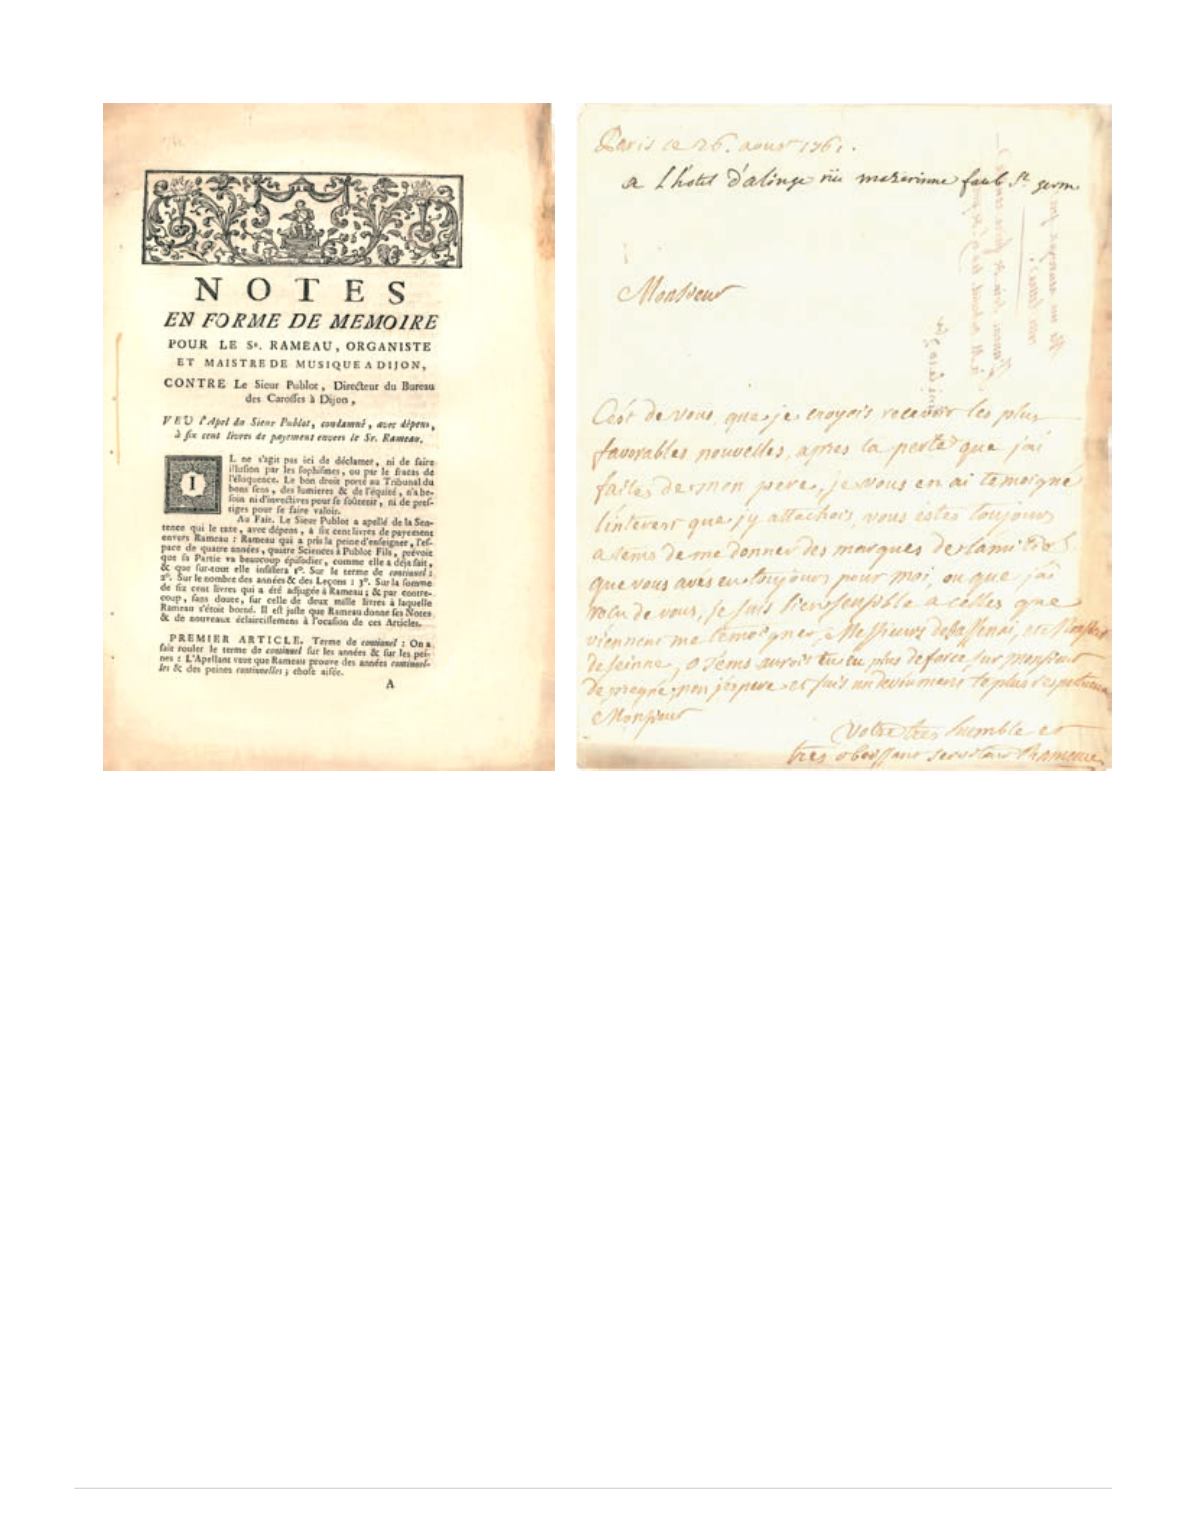 NOTES
EN FORME DE MEMOIRE
POUR LE Sr. RAMEAU, ORGANISTE
ET MAISTRE DE MUSIQUE A DIJON,
CONTRE Le Sieur Publot, Directeur du Bureau
des Carosses à Dijon,
VEU l'Apel du Sieur Publot, condamné, avec dépens,
à six cent livres de payement envers le Sr. Rameau.
IL ne s'agit pas ici de déclamer, ni de faire
illusion par les sophismes, ou par le fracas de
l'éloquence. Le bon droit porté au Tribunal du
bons sens, des lumieres & de l'équité, n'a be-
soin ni d'invectives pour se soûtenir, ni de pres-
tiges pour se faire valoir.
Au Fait. Le Sieur Publot a apellé de la Sen-
tence qui le taxe, avec dépens, à six cent livres de payement
envers Rameau : Rameau qui a pris la peine d'enseigner, l'es-
pace de quatre années, quatre Sciences à Publot Fils, prévoit
que sa Partie va beaucoup épisodier, comme elle a déja fait,
& que sur-tout elle insistera 1°. Sur le terme de continuel :
2°. Sur le nombre des années & des Leçons : 3°. Sur la somme
de six cent livres qui a été adjugée à Rameau ; & par contre-
coup, sans doute, sur celle de deux mille livres à laquelle
Rameau s'étoit borné. Il est juste que Rameau donne ses Notes
& de nouveaux éclaircissemens à l'ocasion de ces Articles.
PREMIER ARTICLE. Terme de continuel : On a
fait rouler le terme de continuel sur les années & sur les pei-
nes : L'Apellant veut que Rameau prouve des années continuel-
les & des peines continuelles ; chose aisée.
A
Paris ce 26. aoust 1761.
a Lhotel d'alinge rüe mazarinne faub St. germ
Monsieur
C'est de vous, que je croyois recevoir les plus
favorables nouvelles, apres la perte que j'ai
faites de mon pere, je vous en ai temoigné
l'interest que j'y attachois, vous estes toujours
a tems de me donner des marques de
que vous avés eu toujours pour moi, ou que j'ai
de vous, je suis sensible a celles que
viennent me temoigner, Messieurs
de seinne, eu plus de force, sur monsieur
de non j'espere et suis le plus respectueux
Monsieur
Votre tres humble et
tres obeissant serviteur Rameau